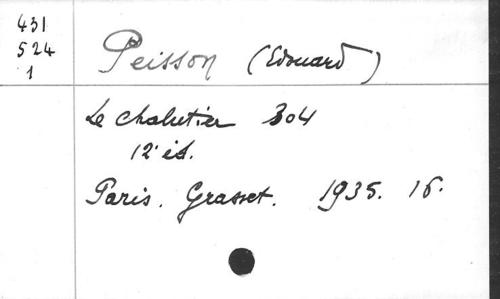 431
524
1
Peisson (Edouard)
Le chalutier 304
12 éd.
Paris. Grasset. 1935. 16.